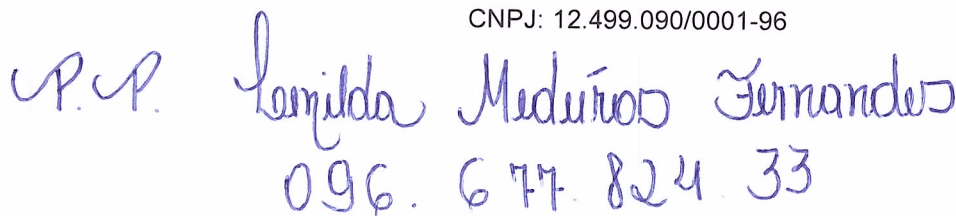 CNPJ: 12.499.090/0001-96
P.P. Lenilda Medeiros Fernandes
096. 677. 824. 33